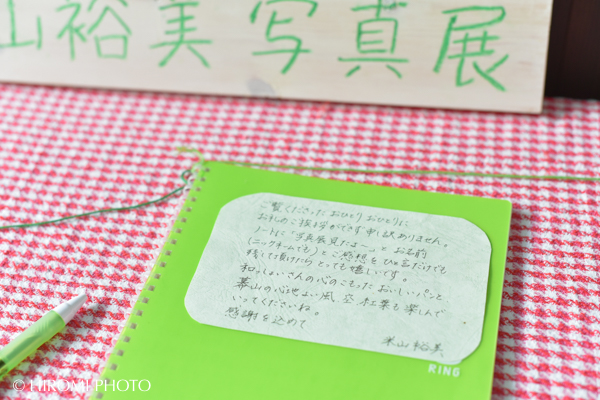 山裕美写真展
ご覧くださった おひとり おひとりに
お礼のご挨拶ができず申し訳ありません。
ノートに「写真展見たよ〜」× お名前
(ニックネームでも)とご感想をひと言だけでも
残して頂けたら とっても嬉しいです。
和っしょいさんの心のこもった おいしいパンと
幕山の心地よい風、空、紅葉も楽しんで
いってくださいね。
感謝を込めて
米山裕美
RING
© HIROMI PHOTO